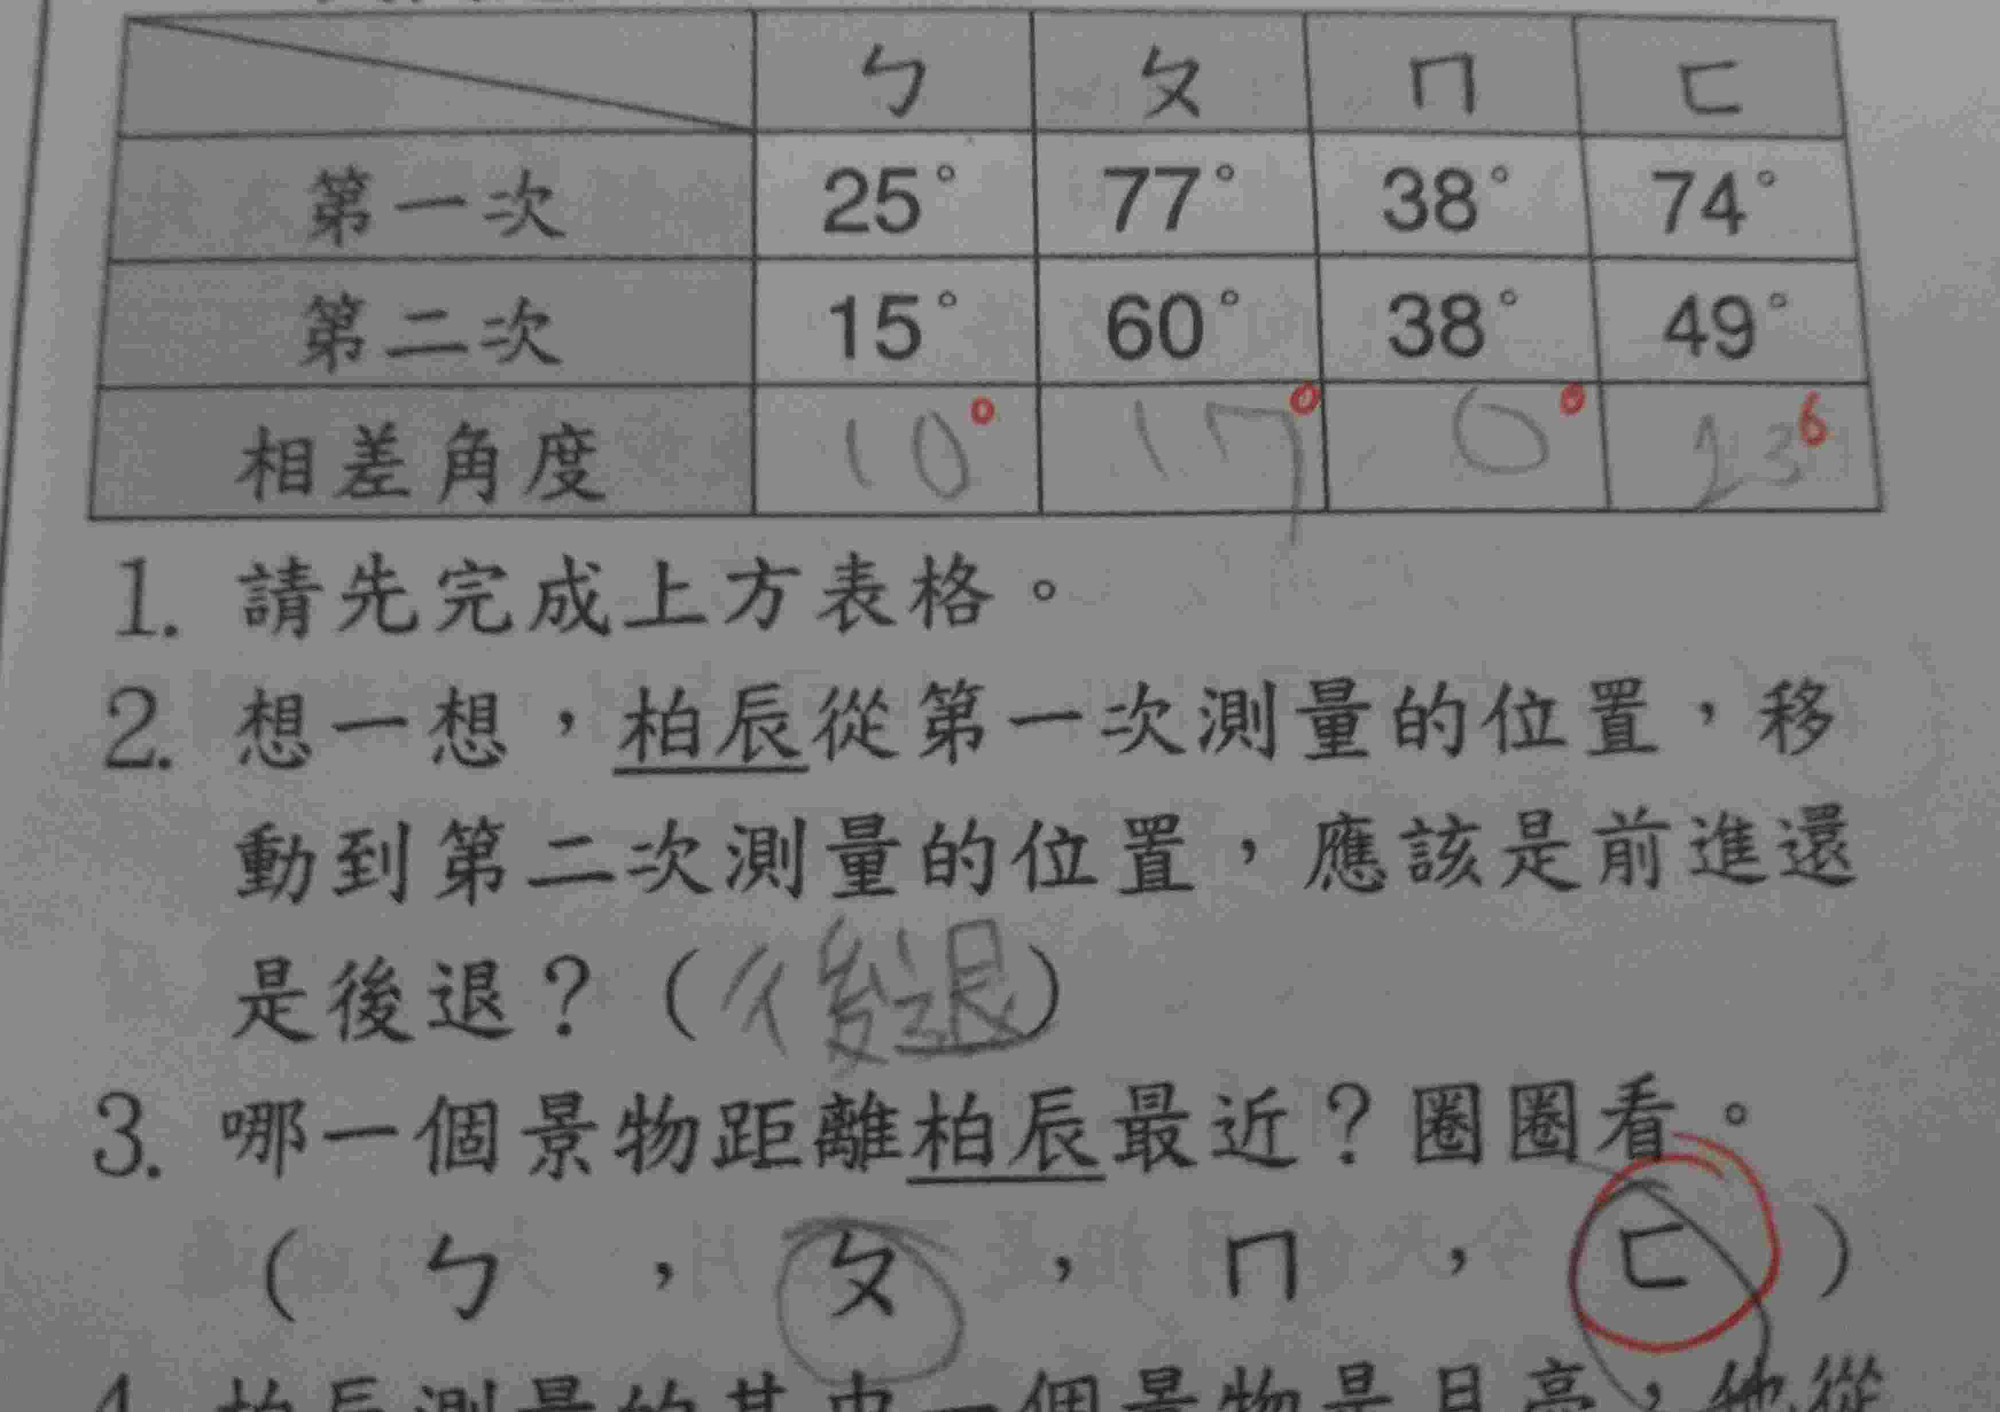 ㄅ ㄆ ㄇ ㄈ
第一次 25° 77° 38° 74°
第二次 15° 60° 38° 49°
相差角度 10° 17° 0° 23°
1. 請先完成上方表格。
2. 想一想，柏辰從第一次測量的位置，移
動到第二次測量的位置，應該是前進還
是後退？（後退）
3. 哪一個景物距離柏辰最近？圈圈看。
（ ㄅ ， ㄆ ， ㄇ ， ㄈ ）
4. 柏辰測量的其中一個景物是月亮，他從